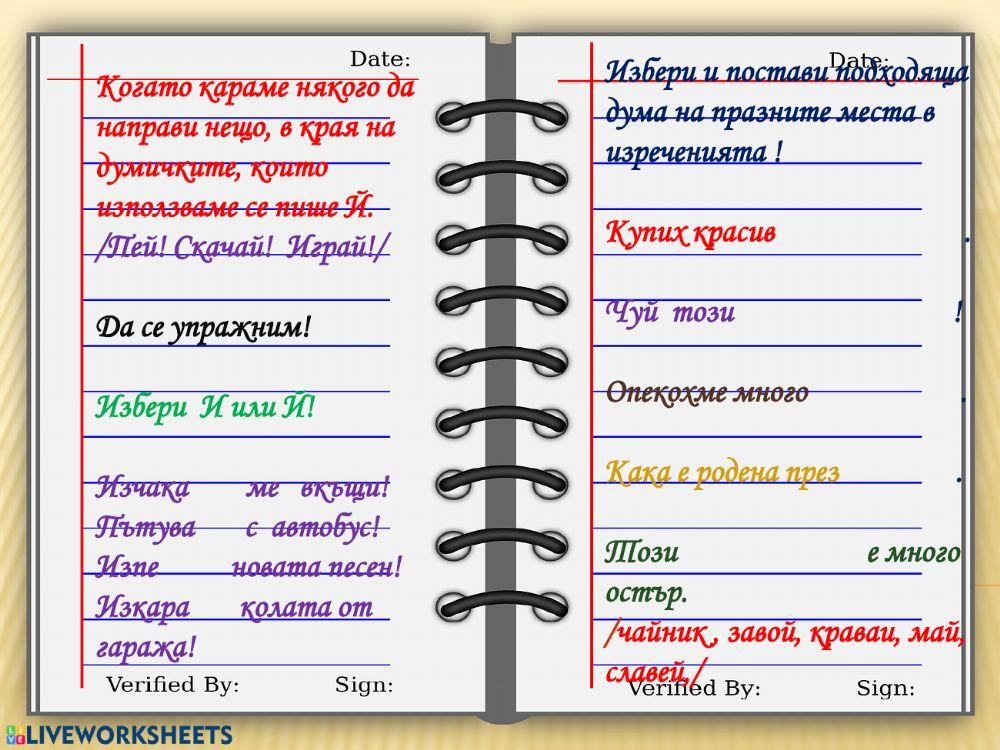 Date:
Когато караме някого да
направи нещо, в края на
думичките, които
използваме се пише Й.
/Пей! Скачай! Играй!/
Да се упражним!
Избери И или Й!
Изчака ме вкъщи!
Пътува с автобус!
Изпе новата песен!
Изкара колата от
гаража!
Verified By: Sign:
Date:
Избери и постави подходяща
дума на празните места в
изреченията !
Купих красив .
Чуй този !
Опекохме много .
Кака е родена през .
Този е много
остър.
/чайник , завой, краваи, май,
славей,/
Verified By: Sign:
LIVEWORKSHEETS